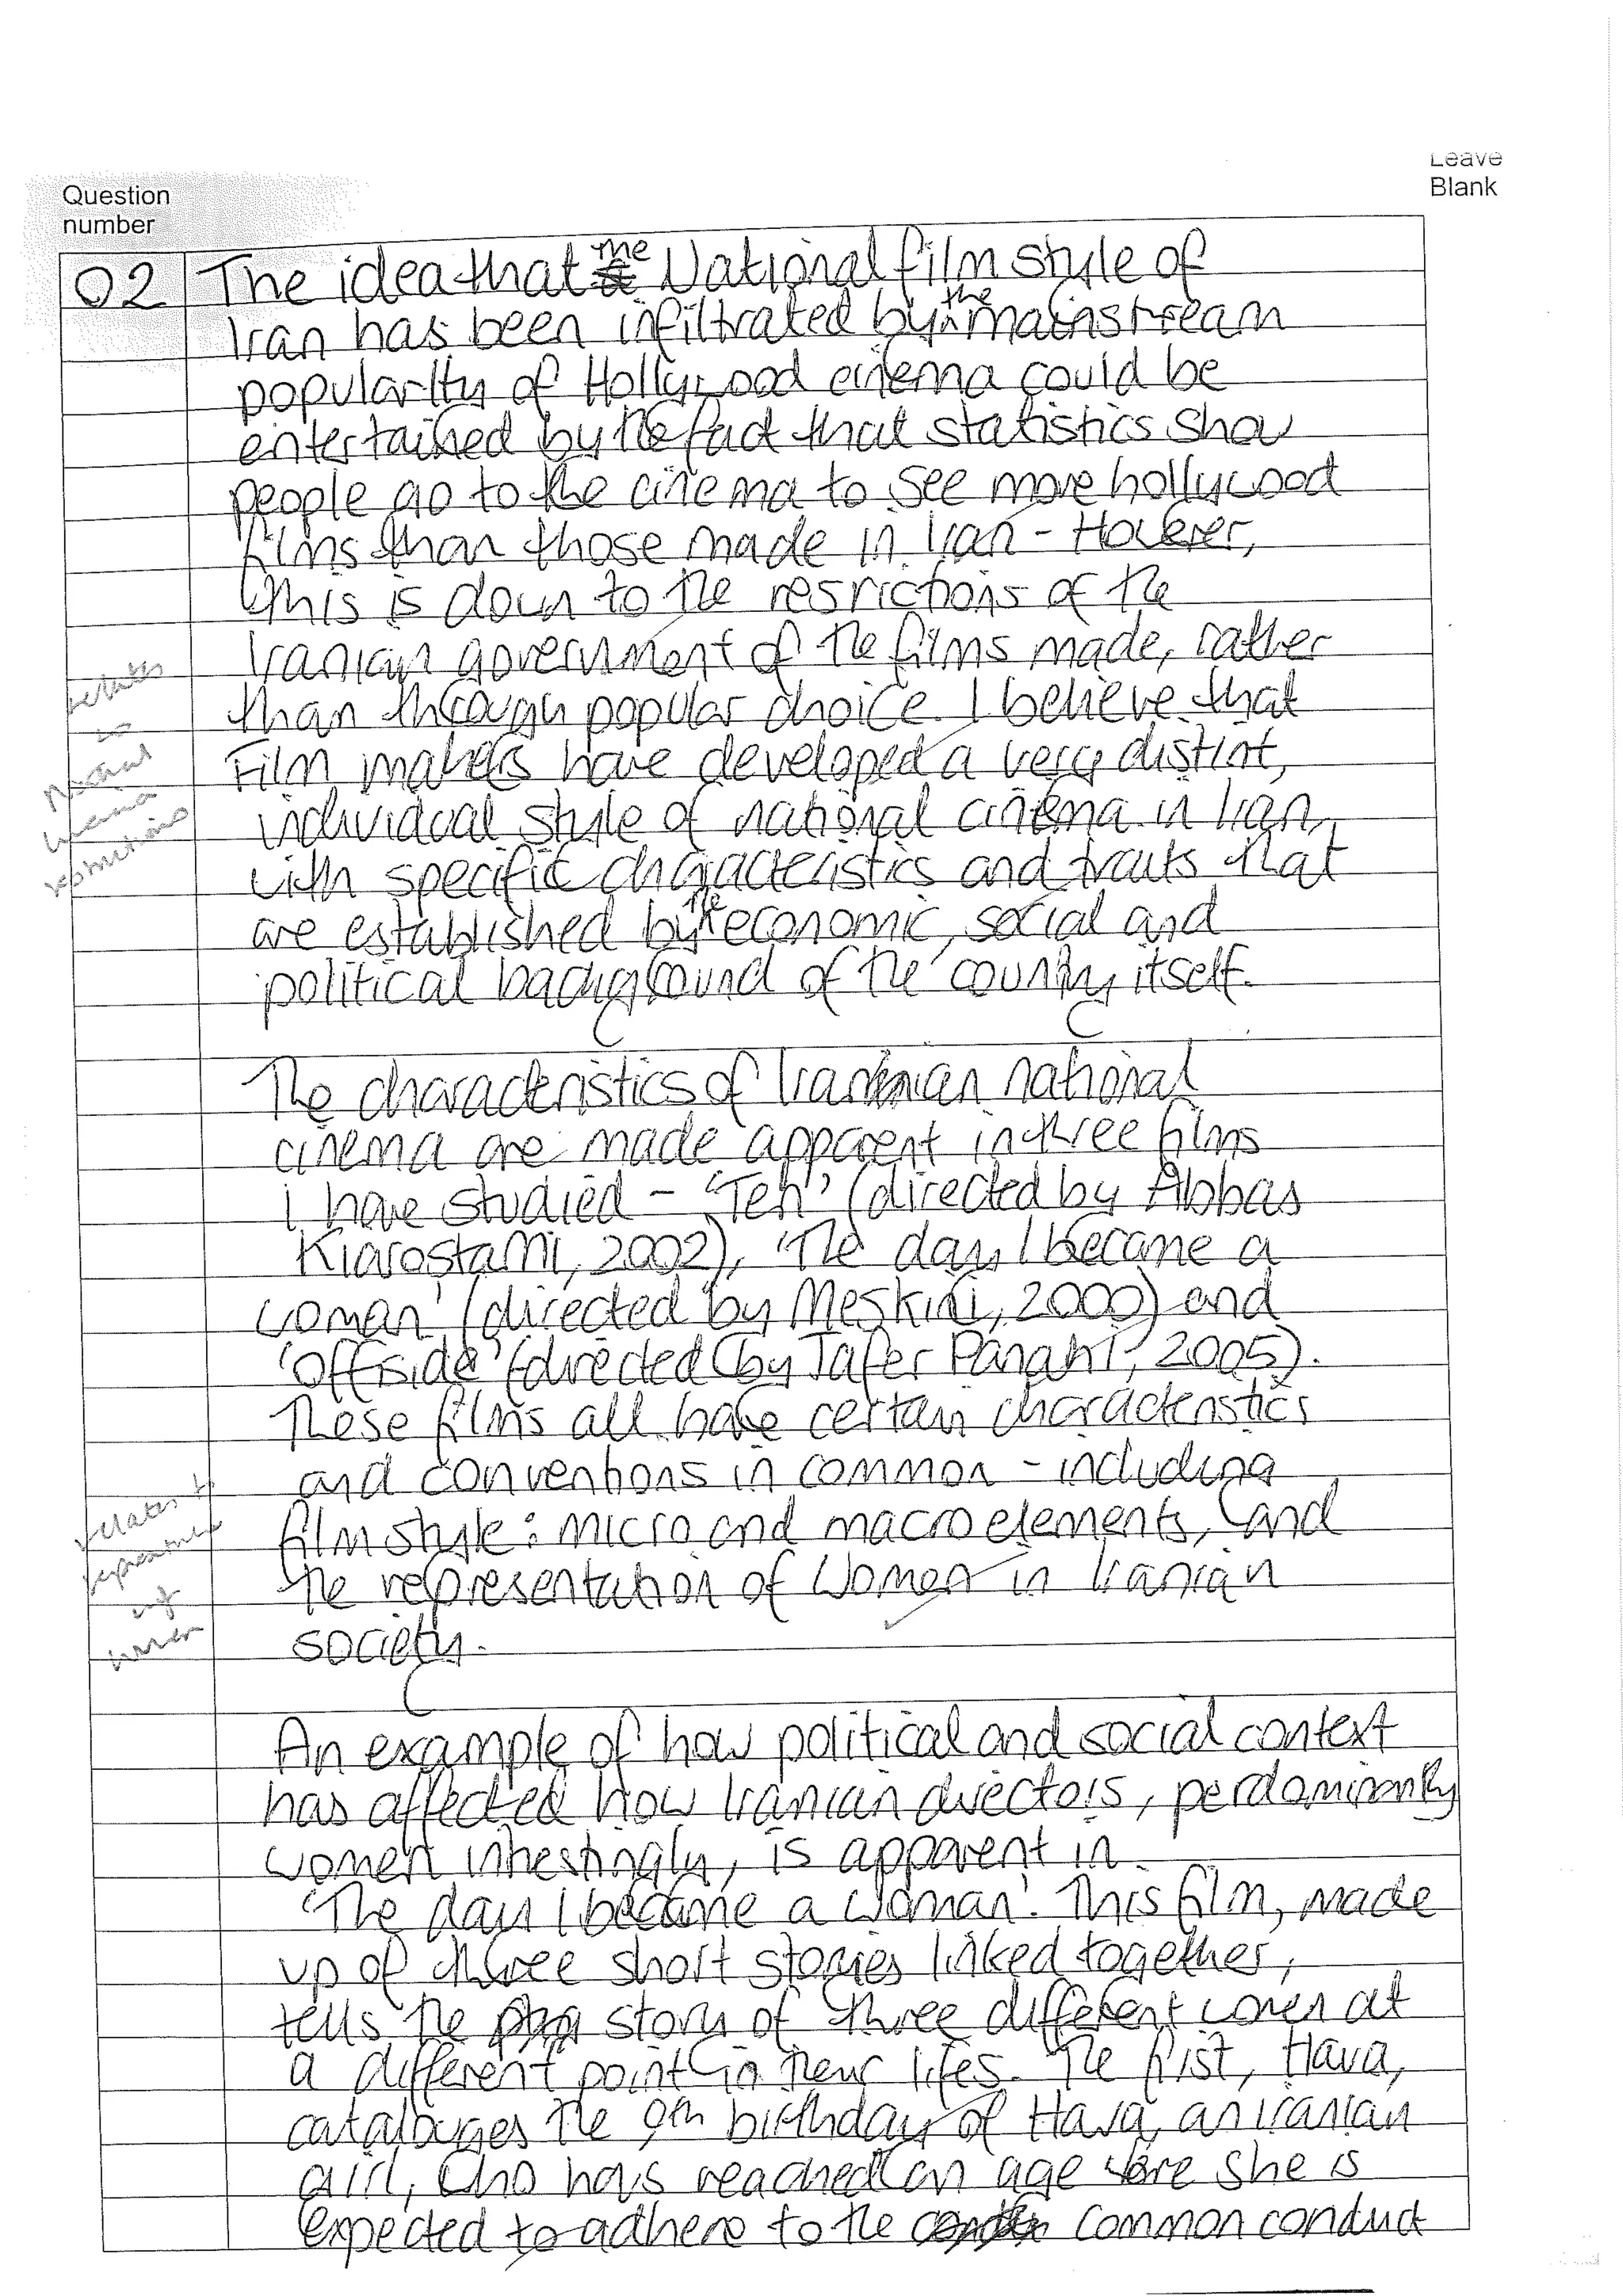 Leave
Blank
Question
number
02 The idea that the National film style of
Iran has been infiltrated by the mainstream
popularity of Hollywood cinema could be
entertained by the fact that statistics show
people go to the cinema to see more hollywood
films than those made in Iran - However,
this is down to the resrictions of the
Iranian government of the films made, rather
than through popular choice. I believe that
Film makers have developed a very distint,
individual style of national cinema in Iran,
with specific characteristics and traits that
are established by the economic, social and
political background of the country itself.
relates
to
National
cinema
restrictions
The characteristics of Iranian national
cinema are made apparent in three films
I have studied - 'Ten' (directed by Abbas
Kiarostami, 2002), 'The day I became a
woman' (directed by Meskini, 2000) and
'Offside' (directed by Jafer Panahi, 2005).
These films all have certain characteristics
and conventions in common - including
film style: micro and macro elements, and
the representation of Women in Iranian
society.
relates to
representation
of
women
An example of how political and social context
has affected how Iranian directors, perdominantly
women intrestingly, is apparent in
'The day I became a woman'. This film, made
up of three short stories linked together,
tells the story of three different women at
a different point in their lifes. The first, Hava,
catalouges the 9th birthday of Hava, an iranian
girl, who has reached an age were she is
expected to adhere to the common conduct